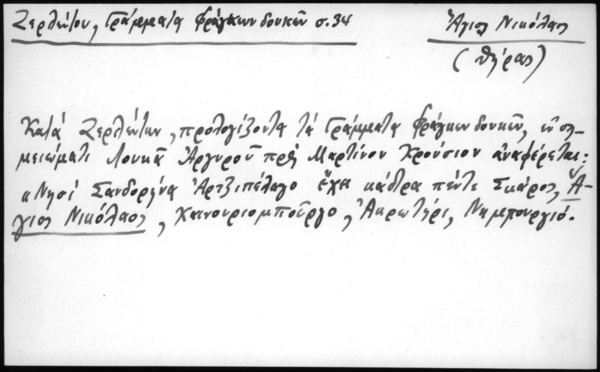 Ζερλέντου, Γράμματα Φράγκων δουκῶν σ. 34
Ἅγιος Νικόλαος
(Θήρας)
Κατά Ζερλέντην, προλογίζοντα τά Γράμματα Φράγκων δουκῶν, ἐν ση-
μειώματι Λουκᾶ Ἀργυροῦ πρός Μαρτῖνον Κρούσιον ἀναφέρεται:
« Νησί Σανδορήνα Ἀρτζιπέλαγο ἔχει κάστρα πέντε Σκάρος, Ἅ-
γιος Νικόλαος, Καινουριομπούργο, Ἀκρωτήρι, Νημπουργιό.